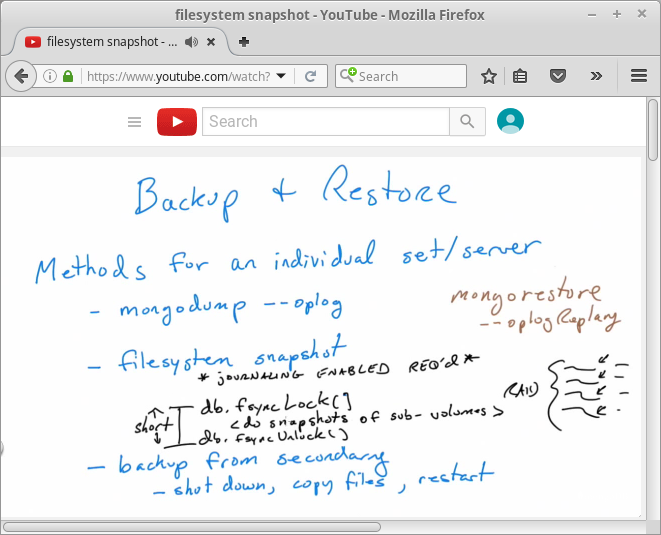 filesystem snapshot - YouTube - Mozilla Firefox
filesystem snapshot - ...
https://www.youtube.com/watch?
Search
Search
Backup + Restore
Methods for an individual set/server
- mongodump --oplog
mongorestore
--oplogReplay
- filesystem snapshot
* JOURNALING ENABLED REQ'd *
short
db.fsyncLock()
<do snapshots of sub-volumes>
db.fsyncUnlock()
RAID
- backup from secondary
- shut down, copy files, restart